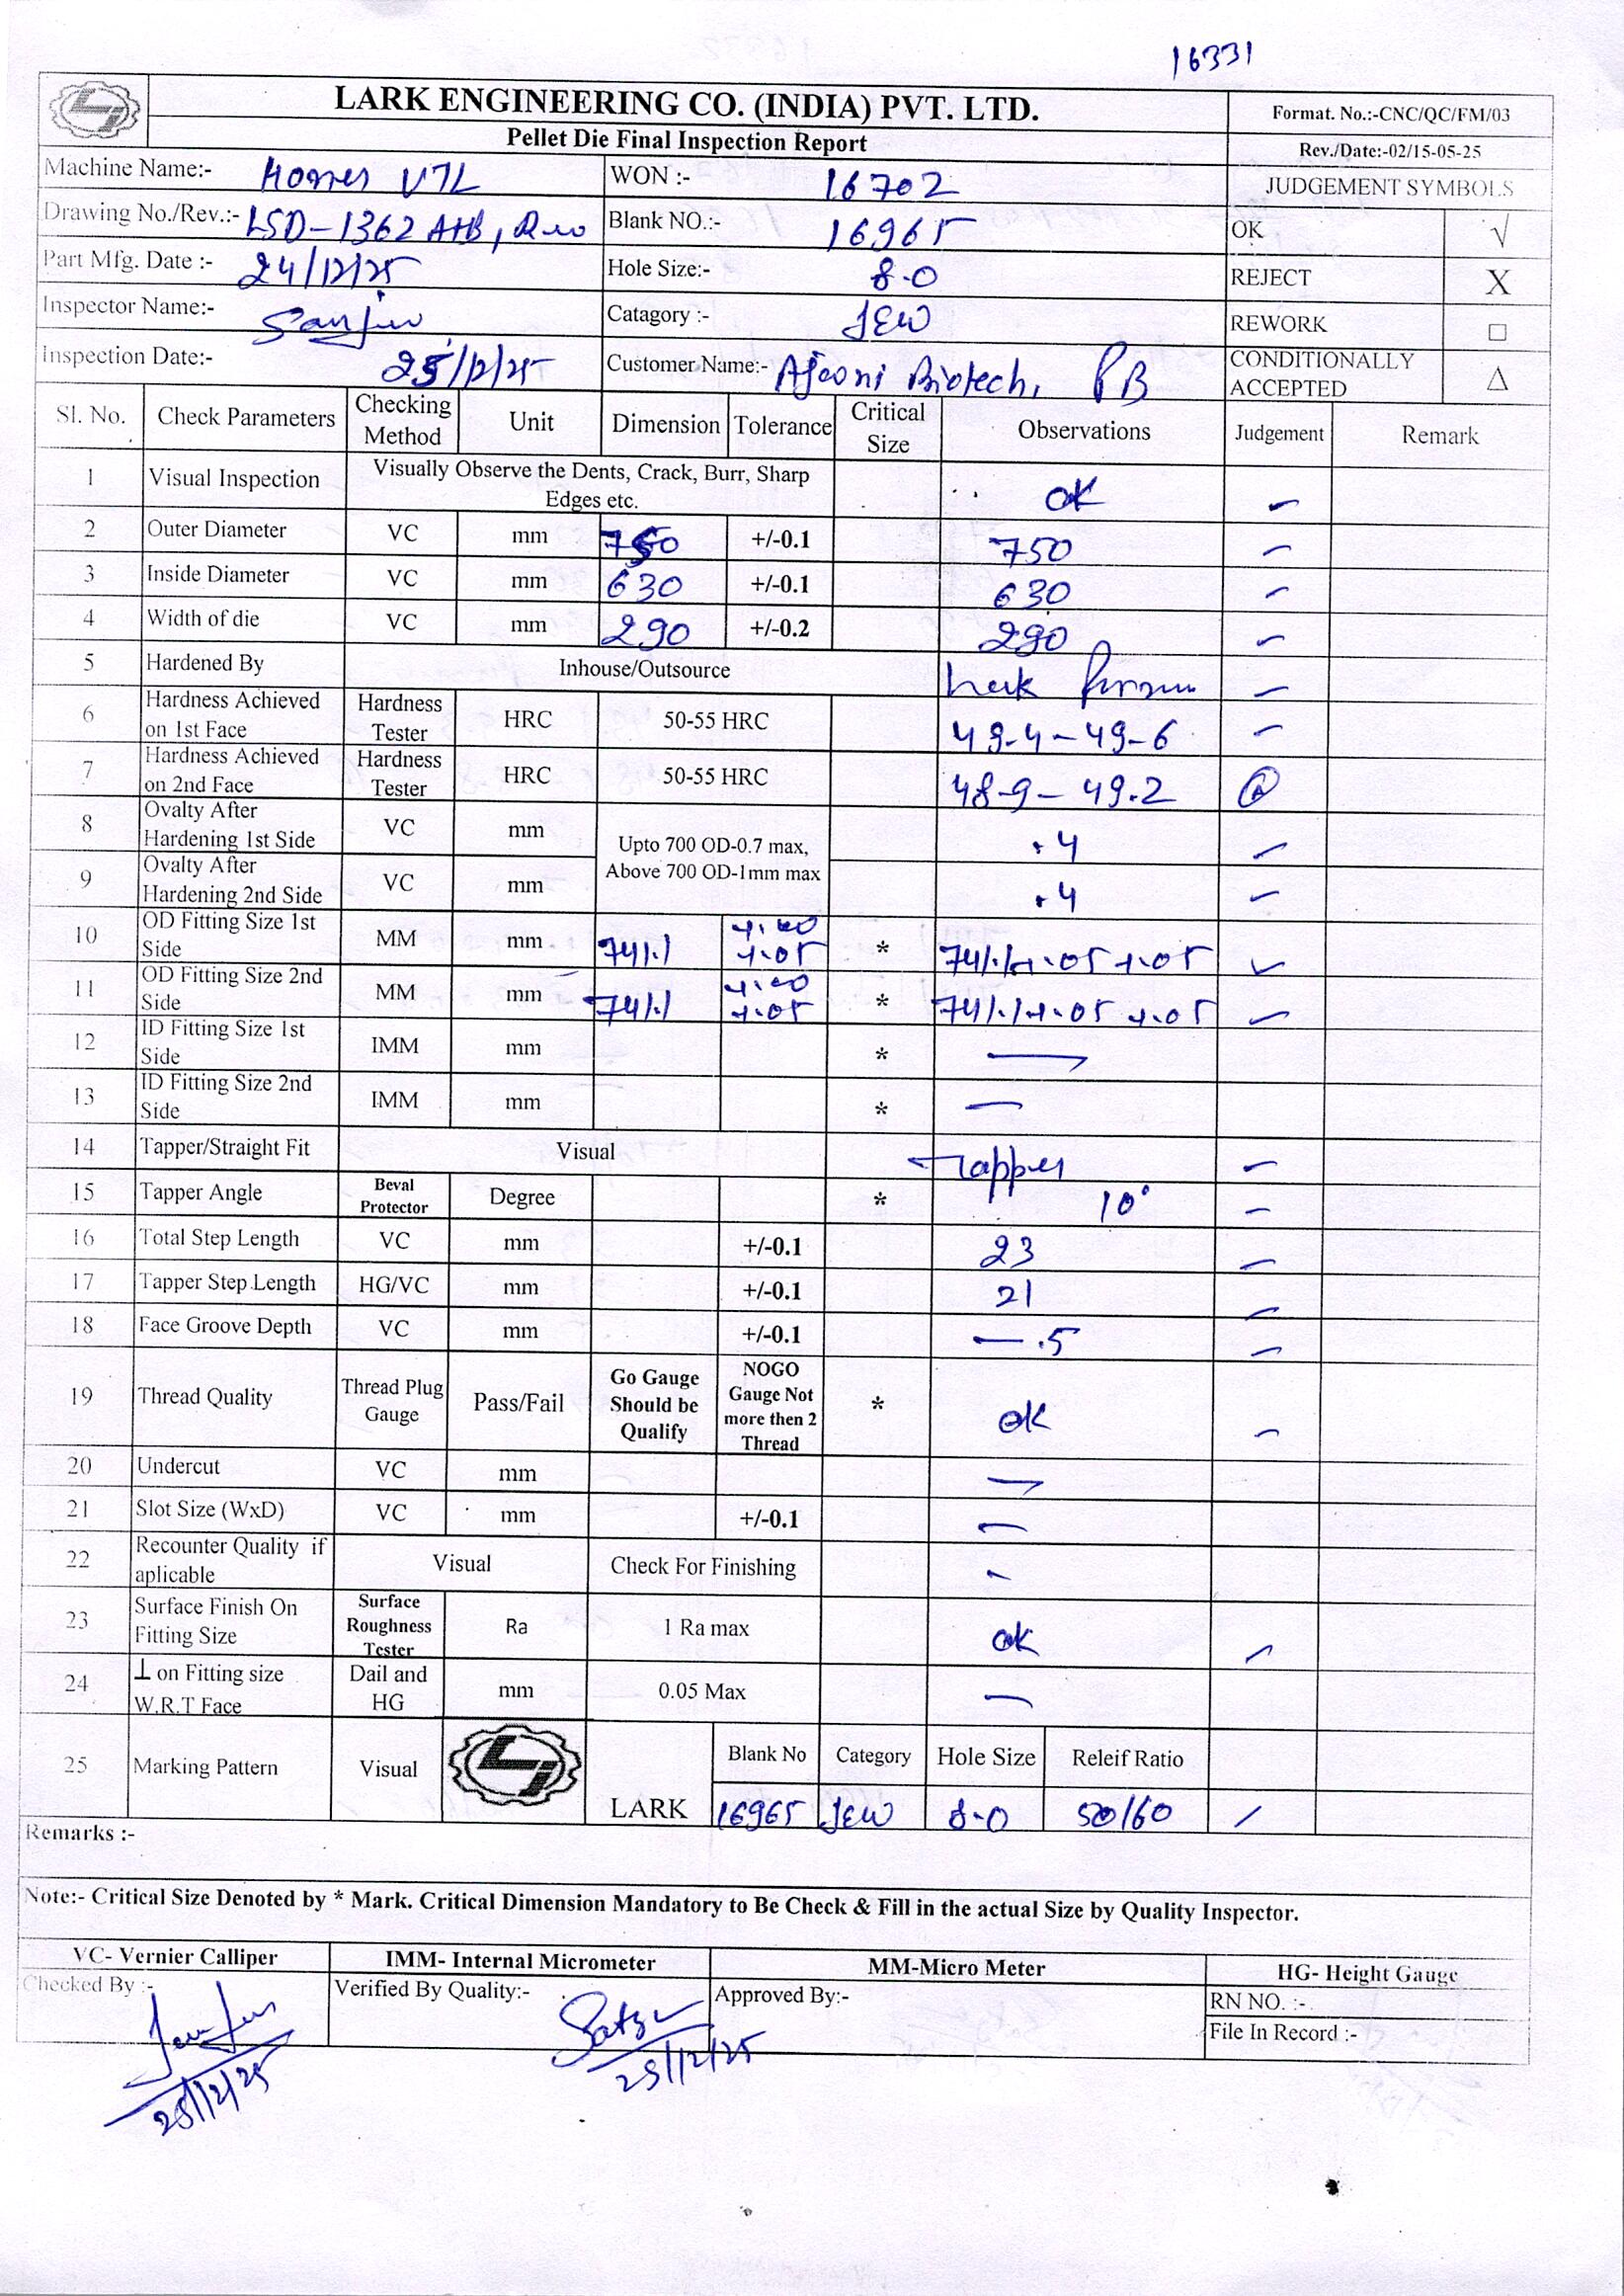 16331
LARK ENGINEERING CO. (INDIA) PVT. LTD.
Format. No.:-CNC/QC/FM/03
Pellet Die Final Inspection Report
Rev./Date:-02/15-05-25
Machine Name:- VTL WON :- 16702 JUDGEMENT SYMBOLS
Drawing No./Rev.:- LSD-1362 A+B, Blank NO.:- 16965 OK √
Part Mfg. Date :- 24/12/25 Hole Size:- 8.0 REJECT X
Inspector Name:- Catagory :- JEW REWORK □
Inspection Date:- 25/12/25 Customer Name:- Ajooni Biotech, PB CONDITIONALLY ACCEPTED Δ
Sl. No. Check Parameters Checking Method Unit Dimension Tolerance Critical Size Observations Judgement Remark
1 Visual Inspection Visually Observe the Dents, Crack, Burr, Sharp Edges etc. OK
2 Outer Diameter VC mm 750 +/-0.1 750
3 Inside Diameter VC mm 630 +/-0.1 630
4 Width of die VC mm 290 +/-0.2 290
5 Hardened By Inhouse/Outsource
6 Hardness Achieved on 1st Face Hardness Tester HRC 50-55 HRC 49-4-49-6
7 Hardness Achieved on 2nd Face Hardness Tester HRC 50-55 HRC 48-9-49.2
8 Ovalty After Hardening 1st Side VC mm Upto 700 OD-0.7 max, Above 700 OD-1mm max .4
9 Ovalty After Hardening 2nd Side VC mm .4
10 OD Fitting Size 1st Side MM mm 741.1 +.05 * 741.1+.05 +.05
11 OD Fitting Size 2nd Side MM mm 741.1 +.05 * 741.1+.05 +.05
12 ID Fitting Size 1st Side IMM mm *
13 ID Fitting Size 2nd Side IMM mm *
14 Tapper/Straight Fit Visual Tapper
15 Tapper Angle Beval Protector Degree * 10°
16 Total Step Length VC mm +/-0.1 23
17 Tapper Step Length HG/VC mm +/-0.1 21
18 Face Groove Depth VC mm +/-0.1 .5
19 Thread Quality Thread Plug Gauge Pass/Fail Go Gauge Should be Qualify NOGO Gauge Not more then 2 Thread * ok
20 Undercut VC mm
21 Slot Size (WxD) VC mm +/-0.1
22 Recounter Quality if aplicable Visual Check For Finishing
23 Surface Finish On Fitting Size Surface Roughness Tester Ra 1 Ra max ok
24 ⊥ on Fitting size W.R.T Face Dail and HG mm 0.05 Max
25 Marking Pattern Visual LARK Blank No Category Hole Size Releif Ratio
16965 JEW 8-0 50/60
Remarks :-
Note:- Critical Size Denoted by * Mark. Critical Dimension Mandatory to Be Check & Fill in the actual Size by Quality Inspector.
VC- Vernier Calliper IMM- Internal Micrometer MM-Micro Meter HG- Height Gauge
Checked By :- Verified By Quality:- Approved By:- RN NO. :-
File In Record :-
25/12/25 25/12/25